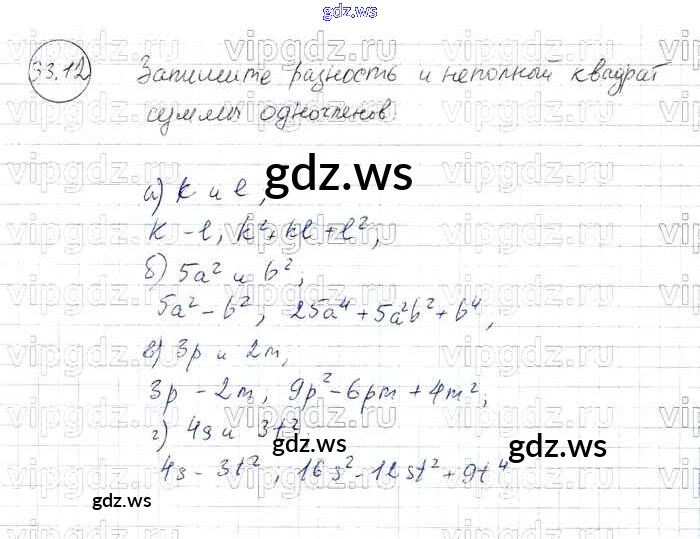 gdz.ws
33.12 Запишите разность и неполный квадрат
суммы одночленов.
gdz.ws
а) k и l,
k - l, k² + kl + l²,
б) 5a² и b²,
5a² - b², 25a⁴ + 5a²b² + b⁴,
в) 3p и 2m,
3p - 2m, 9p² - 6pm + 4m²,
г) 4s и 3t²
gdz.ws
gdz.ws
4s - 3t², 16s² - 12st² + 9t⁴
gdz.ws
vipgdz.ru